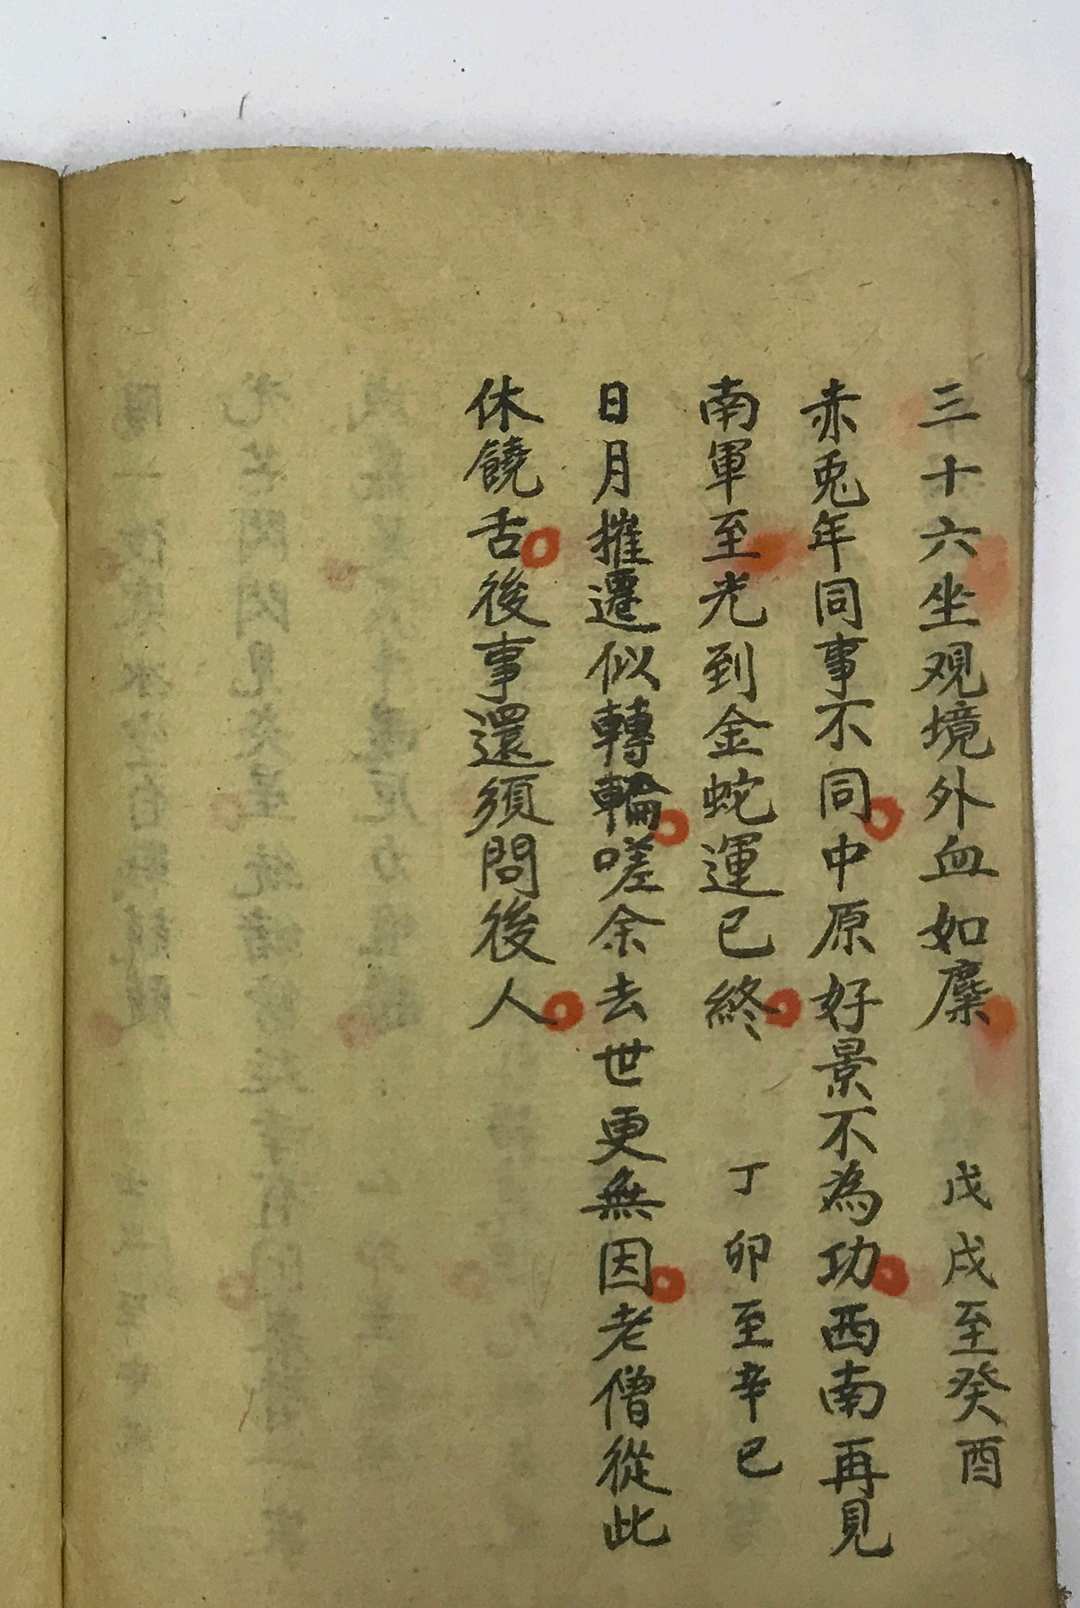 三十六坐观境外血如麋　戊戌至癸酉
赤兎年同事不同中原好景不為功西南再見
南軍至光到金蛇運已終　丁卯至辛巳
日月摧遷似轉輪嗟余去世更無因老僧從此
休饒舌後事還須問後人